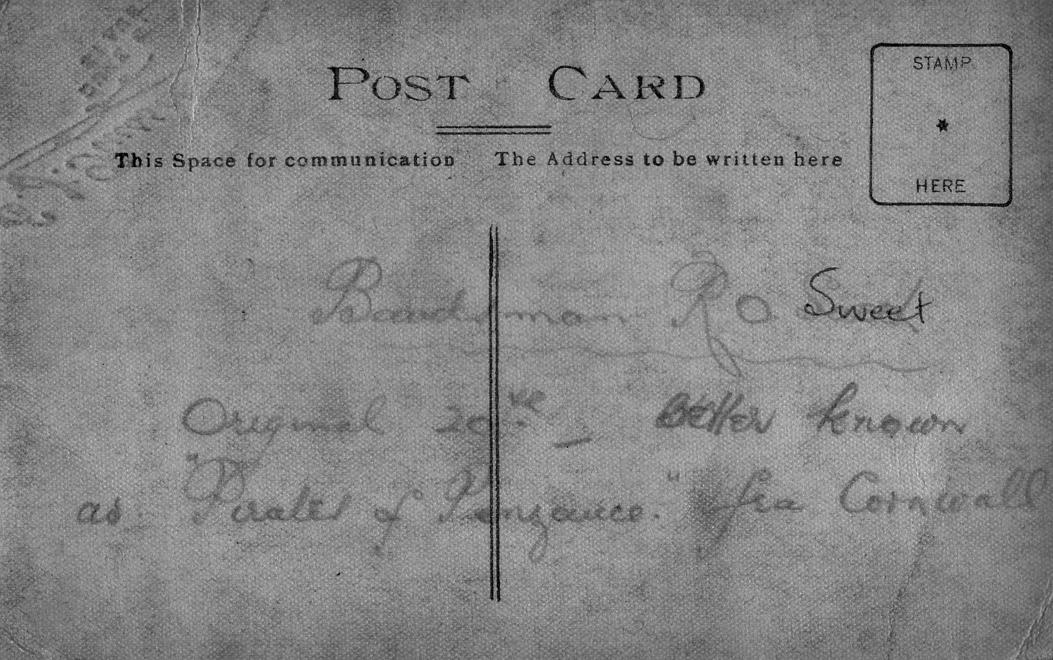 POST CARD
STAMP
HERE
This Space for communication The Address to be written here
Bandsman R O Sweet
Original 20 - better known
as "Pirates of Penzance." fra Cornwall